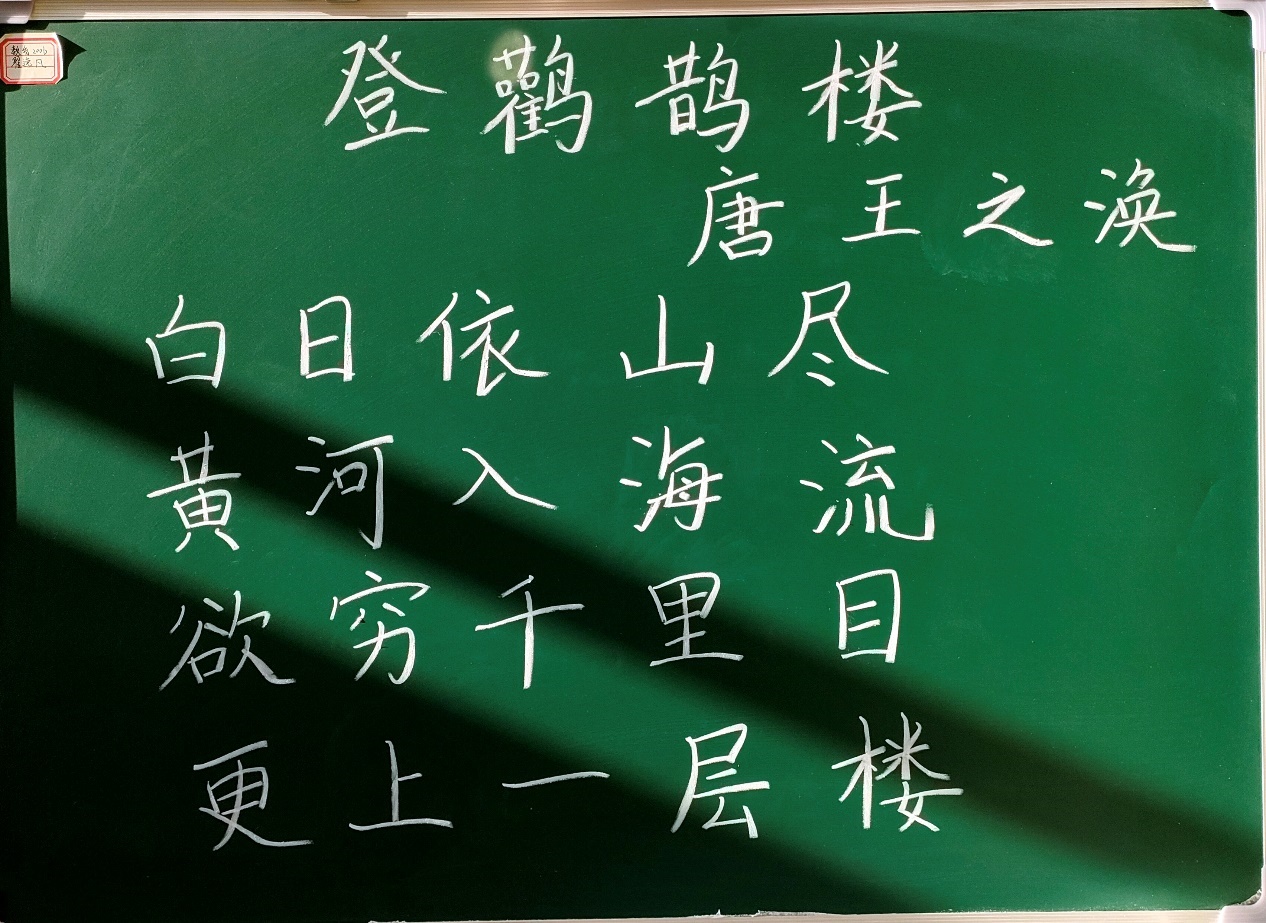 登鸛鹊楼
唐王之涣
白日依山尽
黄河入海流
欲穷千里目
更上一层楼